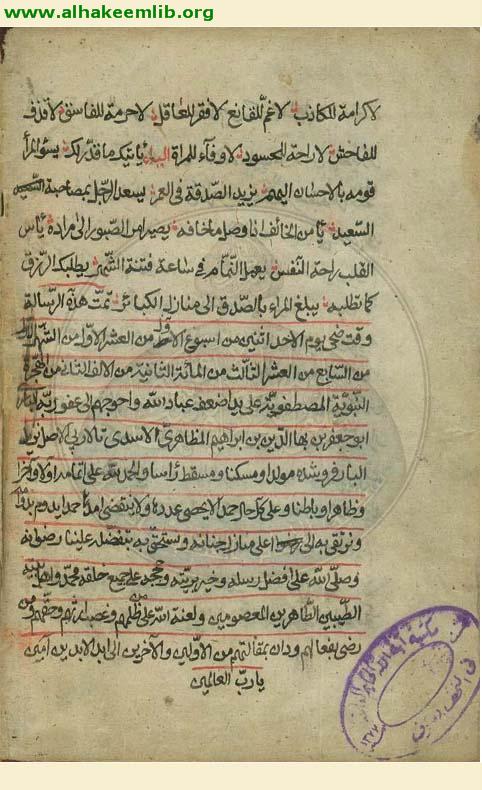 www.alhakeemlib.org
لا كرامة للكاذب لا غم للقانع لا فقر للعاقل لا حرمة للفاسق لا قذف
للفاحش لا راحة لحسود لا وفاء للمراة الياء ياتيك ما قدر لك يسود المرأ
قومه بالاحسان اليهم يزيد الصدقة في العمر يسعد الرجل بمصاحبة
السعيد يامن الخائف اذا وصل ما خافه يصير امر الصبور الى مراده ياس
القلب راحة النفس يعمل النمام في ساعة فتنة الشهر يطلبك الرزق
كما تطلبه يبلغ المراء بالصدق الى منازل الكبائر تمت هذه الرسالة
وقت ضحى يوم الاحد اثنين من اسبوع الاول من العشر الاول من الشهر
من السابع من العشر الثالث من المائة الثانية من الالف الثاني من الهجرة
النبوية المصطفوية على يد اضعف عباد الله واحوجهم الى عفو ربه
ابو جعفر بن بهاالدين بن ابراهيم المظاهري الاسدي الاصل
مولدا ومسكنا ومسقط راسا والحمد لله على اتمامه اولا وآخرا
وظاهرا وباطنا وعلى كل حال حمدا لا يحصى عدده ولا ينقضي امده حمدا يدوم
ونرتقي به الى اعلى منازل جنانه ونستحق به بتفضله علينا رضوانه
وصلى الله على افضل رسله وخير بريته وحججه على جميع خلقه محمد واهل بيته
الطيبين الطاهرين المعصومين ولعنة الله على من ظلمهم وغصب ارثهم وحقهم ومن
رضي بفعالهم ودان بمقالتهم من الاولين والآخرين الى ابد الابدين آمين
يا رب العالمين
مكتبة آية الله الحكيم العامة
في النجف الاشرف